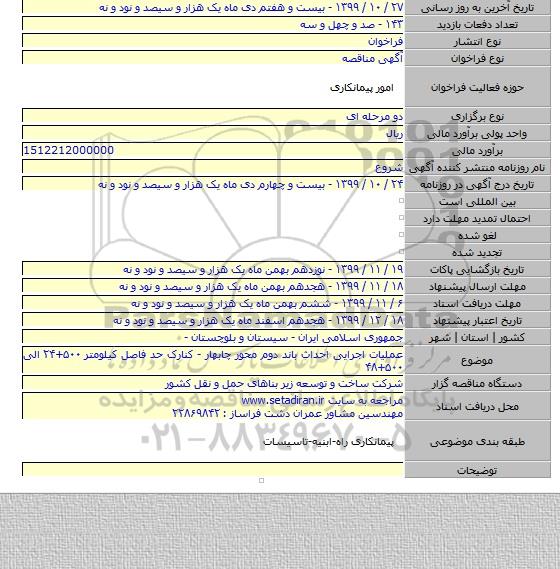 تاریخ آخرین به روز رسانی ۲۷ / ۱۰ / ۱۳۹۹ - بیست و هفتم دی ماه یک هزار و سیصد و نود و نه
تعداد دفعات بازدید ۱۴۳ - صد و چهل و سه
نوع انتشار فراخوان
نوع فراخوان آگهی مناقصه
حوزه فعالیت فراخوان امور پیمانکاری
نوع برگزاری دو مرحله ای
واحد پولی برآورد مالی ریال
برآورد مالی 1512212000000
نام روزنامه منتشر کننده آگهی شروع
تاریخ درج آگهی در روزنامه ۲۴ / ۱۰ / ۱۳۹۹ - بیست و چهارم دی ماه یک هزار و سیصد و نود و نه
بین المللی است
احتمال تمدید مهلت دارد
لغو شده
تجدید شده
تاریخ بازگشایی پاکات ۱۹ / ۱۱ / ۱۳۹۹ - نوزدهم بهمن ماه یک هزار و سیصد و نود و نه
مهلت ارسال پیشنهاد ۱۸ / ۱۱ / ۱۳۹۹ - هجدهم بهمن ماه یک هزار و سیصد و نود و نه
مهلت دریافت اسناد ۶ / ۱۱ / ۱۳۹۹ - ششم بهمن ماه یک هزار و سیصد و نود و نه
تاریخ اعتبار پیشنهاد ۱۸ / ۱۲ / ۱۳۹۹ - هجدهم اسفند ماه یک هزار و سیصد و نود و نه
کشور | استان | شهر جمهوری اسلامی ایران - سیستان و بلوچستان -
موضوع عملیات اجرایی احداث باند دوم محور چابهار - کنارک حد فاصل کیلومتر ۵۰۰+۲۴ الی
۵۰۰+۴۸
دستگاه مناقصه گزار شرکت ساخت و توسعه زیر بناهای حمل و نقل کشور
محل دریافت اسناد مراجعه به سایت www.setadiran.ir
مهندسین مشاور عمران دشت فراساز : ۲۲۸۶۹۸۴۲
طبقه بندی موضوعی پیمانکاری راه-ابنیه-تاسیسات
توضیحات
پایگاه اطلاع رسانی مناقصه و مزایده
۰۲۱-۸۸۳۴۹۶۷۰-۵